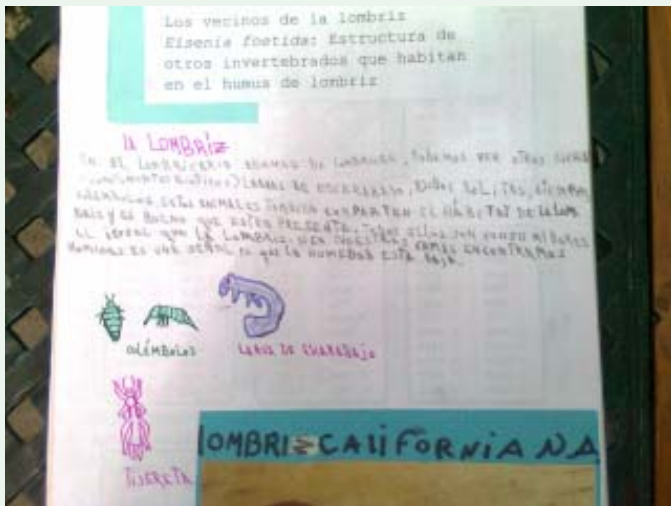 Los vecinos de la lombriz
Eisenia foetida: Estructura de
otros invertebrados que habitan
en el humus de lombriz
LA LOMBRIZ
EN EL LOMBRICARIO ADEMAS DE LOMBRICES, PODEMOS VER OTROS SERES
LARVAS DE ESCARABAJO,
COLÉMBOLOS, ESTOS ANIMALES TAMBIÉN COMPARTEN EL HÁBITAT DE LA LOM
BRIZ Y ES BUENO QUE ESTEN PRESENTE, TODOS ELLOS SON CONSUMIDORES
AL IGUAL QUE LA LOMBRIZ, SI EN NUESTRAS CAMAS ENCONTRAMOS
HORMIGAS ES UNA SEÑAL DE QUE LA HUMEDAD ESTÁ BAJA.
COLÉMBOLOS
LARVA DE ESCARABAJO
TIJERETA
LOMBRIZ CALIFORNIANA